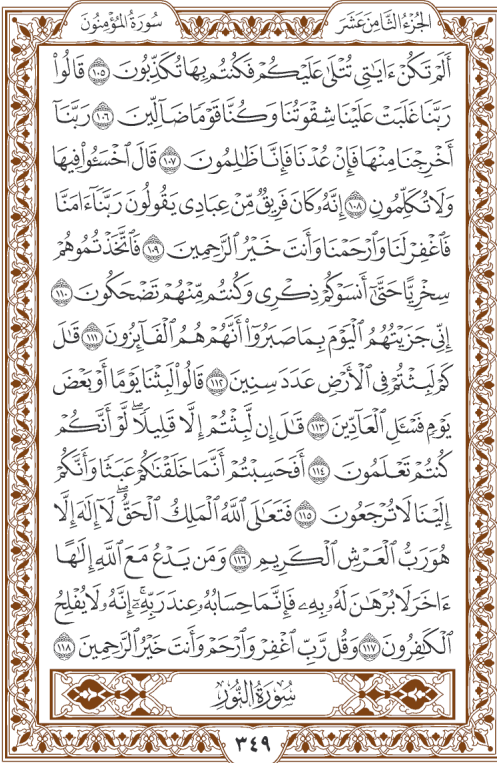 الجزء الثامن عشر
سورة المؤمنون
أَلَمْ تَكُنْ ءَايَٰتِى تُتْلَىٰ عَلَيْكُمْ فَكُنتُم بِهَا تُكَذِّبُونَ ١٠٥ قَالُوا۟
رَبَّنَا غَلَبَتْ عَلَيْنَا شِقْوَتُنَا وَكُنَّا قَوْمًا ضَآلِّينَ ١٠٦ رَبَّنَآ
أَخْرِجْنَا مِنْهَا فَإِنْ عُدْنَا فَإِنَّا ظَٰلِمُونَ ١٠٧ قَالَ ٱخْسَـُٔوا۟ فِيهَا
وَلَا تُكَلِّمُونِ ١٠٨ إِنَّهُۥ كَانَ فَرِيقٌ مِّنْ عِبَادِى يَقُولُونَ رَبَّنَآ ءَامَنَّا
فَٱغْفِرْ لَنَا وَٱرْحَمْنَا وَأَنتَ خَيْرُ ٱلرَّٰحِمِينَ ١٠٩ فَٱتَّخَذْتُمُوهُمْ
سِخْرِيًّا حَتَّىٰٓ أَنسَوْكُمْ ذِكْرِى وَكُنتُم مِّنْهُمْ تَضْحَكُونَ ١١٠
إِنِّى جَزَيْتُهُمُ ٱلْيَوْمَ بِمَا صَبَرُوٓا۟ أَنَّهُمْ هُمُ ٱلْفَآئِزُونَ ١١١ قَٰلَ
كَمْ لَبِثْتُمْ فِى ٱلْأَرْضِ عَدَدَ سِنِينَ ١١٢ قَالُوا۟ لَبِثْنَا يَوْمًا أَوْ بَعْضَ
يَوْمٍ فَسْـَٔلِ ٱلْعَآدِّينَ ١١٣ قَٰلَ إِن لَّبِثْتُمْ إِلَّا قَلِيلًا ۖ لَّوْ أَنَّكُمْ
كُنتُمْ تَعْلَمُونَ ١١٤ أَفَحَسِبْتُمْ أَنَّمَا خَلَقْنَٰكُمْ عَبَثًا وَأَنَّكُمْ
إِلَيْنَا لَا تُرْجَعُونَ ١١٥ فَتَعَٰلَى ٱللَّهُ ٱلْمَلِكُ ٱلْحَقُّ ۖ لَآ إِلَٰهَ إِلَّا
هُوَ رَبُّ ٱلْعَرْشِ ٱلْكَرِيمِ ١١٦ وَمَن يَدْعُ مَعَ ٱللَّهِ إِلَٰهًا
ءَاخَرَ لَا بُرْهَٰنَ لَهُۥ بِهِۦ فَإِنَّمَا حِسَابُهُۥ عِندَ رَبِّهِۦٓ ۚ إِنَّهُۥ لَا يُفْلِحُ
ٱلْكَٰفِرُونَ ١١٧ وَقُل رَّبِّ ٱغْفِرْ وَٱرْحَمْ وَأَنتَ خَيْرُ ٱلرَّٰحِمِينَ ١١٨
سورة النور
٣٤٩